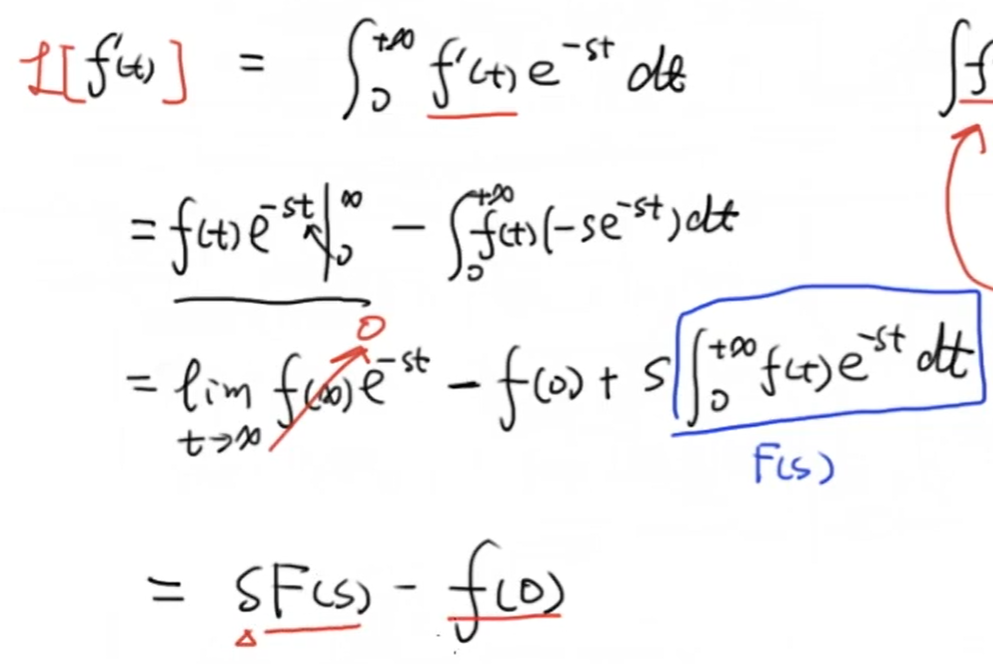 ℒ[f'(t)] = ∫₀^{+∞} f'(t) e^{-st} dt ∫f
= f(t) e^{-st} |₀^∞ - ∫₀^{+∞} f(t) (-s e^{-st}) dt
0
= lim_{t→∞} f(∞) e^{-st} - f(0) + s ∫₀^{+∞} f(t) e^{-st} dt
F(s)
= sF(s) - f(0)